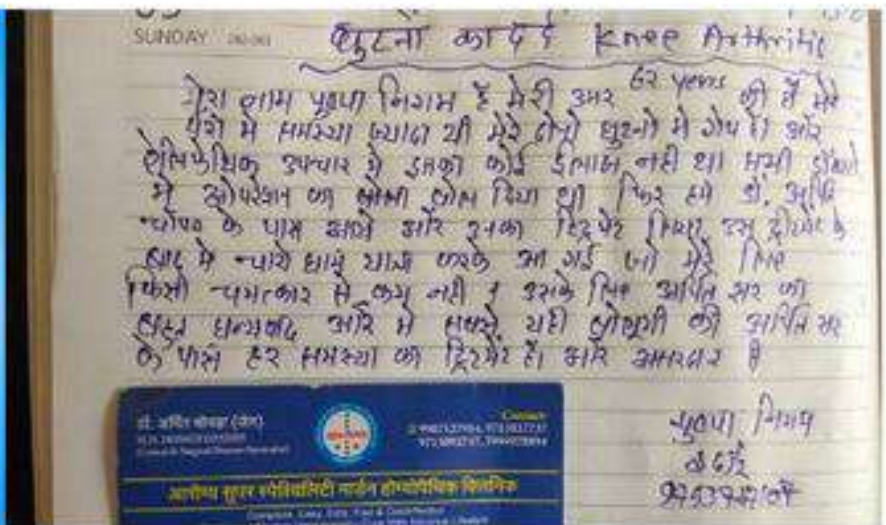 SUNDAY
घुटना का दर्द Knee Arthritis
मेरा नाम पुष्पा निगम है मेरी उमर 62 years की है मेरे
पैरो में समस्या ज्यादा थी मेरे दोनो घुटनो में गेप है। और
ऐलिपेथिक उपचार में इसका कोई ईलाज नही था सभी डॉक्टरो
ने ओपरेशन का बोल दिया था फिर हमे डॉ. अर्पित
चोपड़ा के पास आये और उनका ट्रिटमेंट लिया उस ट्रीटमेंट के
बाद में चारो धाम यात्रा करके आ गई जो मेरे लिए
किसी चमत्कार से कम नही। उसके लिए अर्पित सर का
बहुत धन्यवाद और में सबसे यही बोलूगी की अर्पित सर
के पास हर समस्या का ट्रिटमेंट है। और असरदार है
पुष्पा निगम
डॉ. अर्पित चोपड़ा (जैन)
Contact:
आरोग्य सुपर स्पेशियलिटी मार्डन होम्योपैथिक क्लिनिक